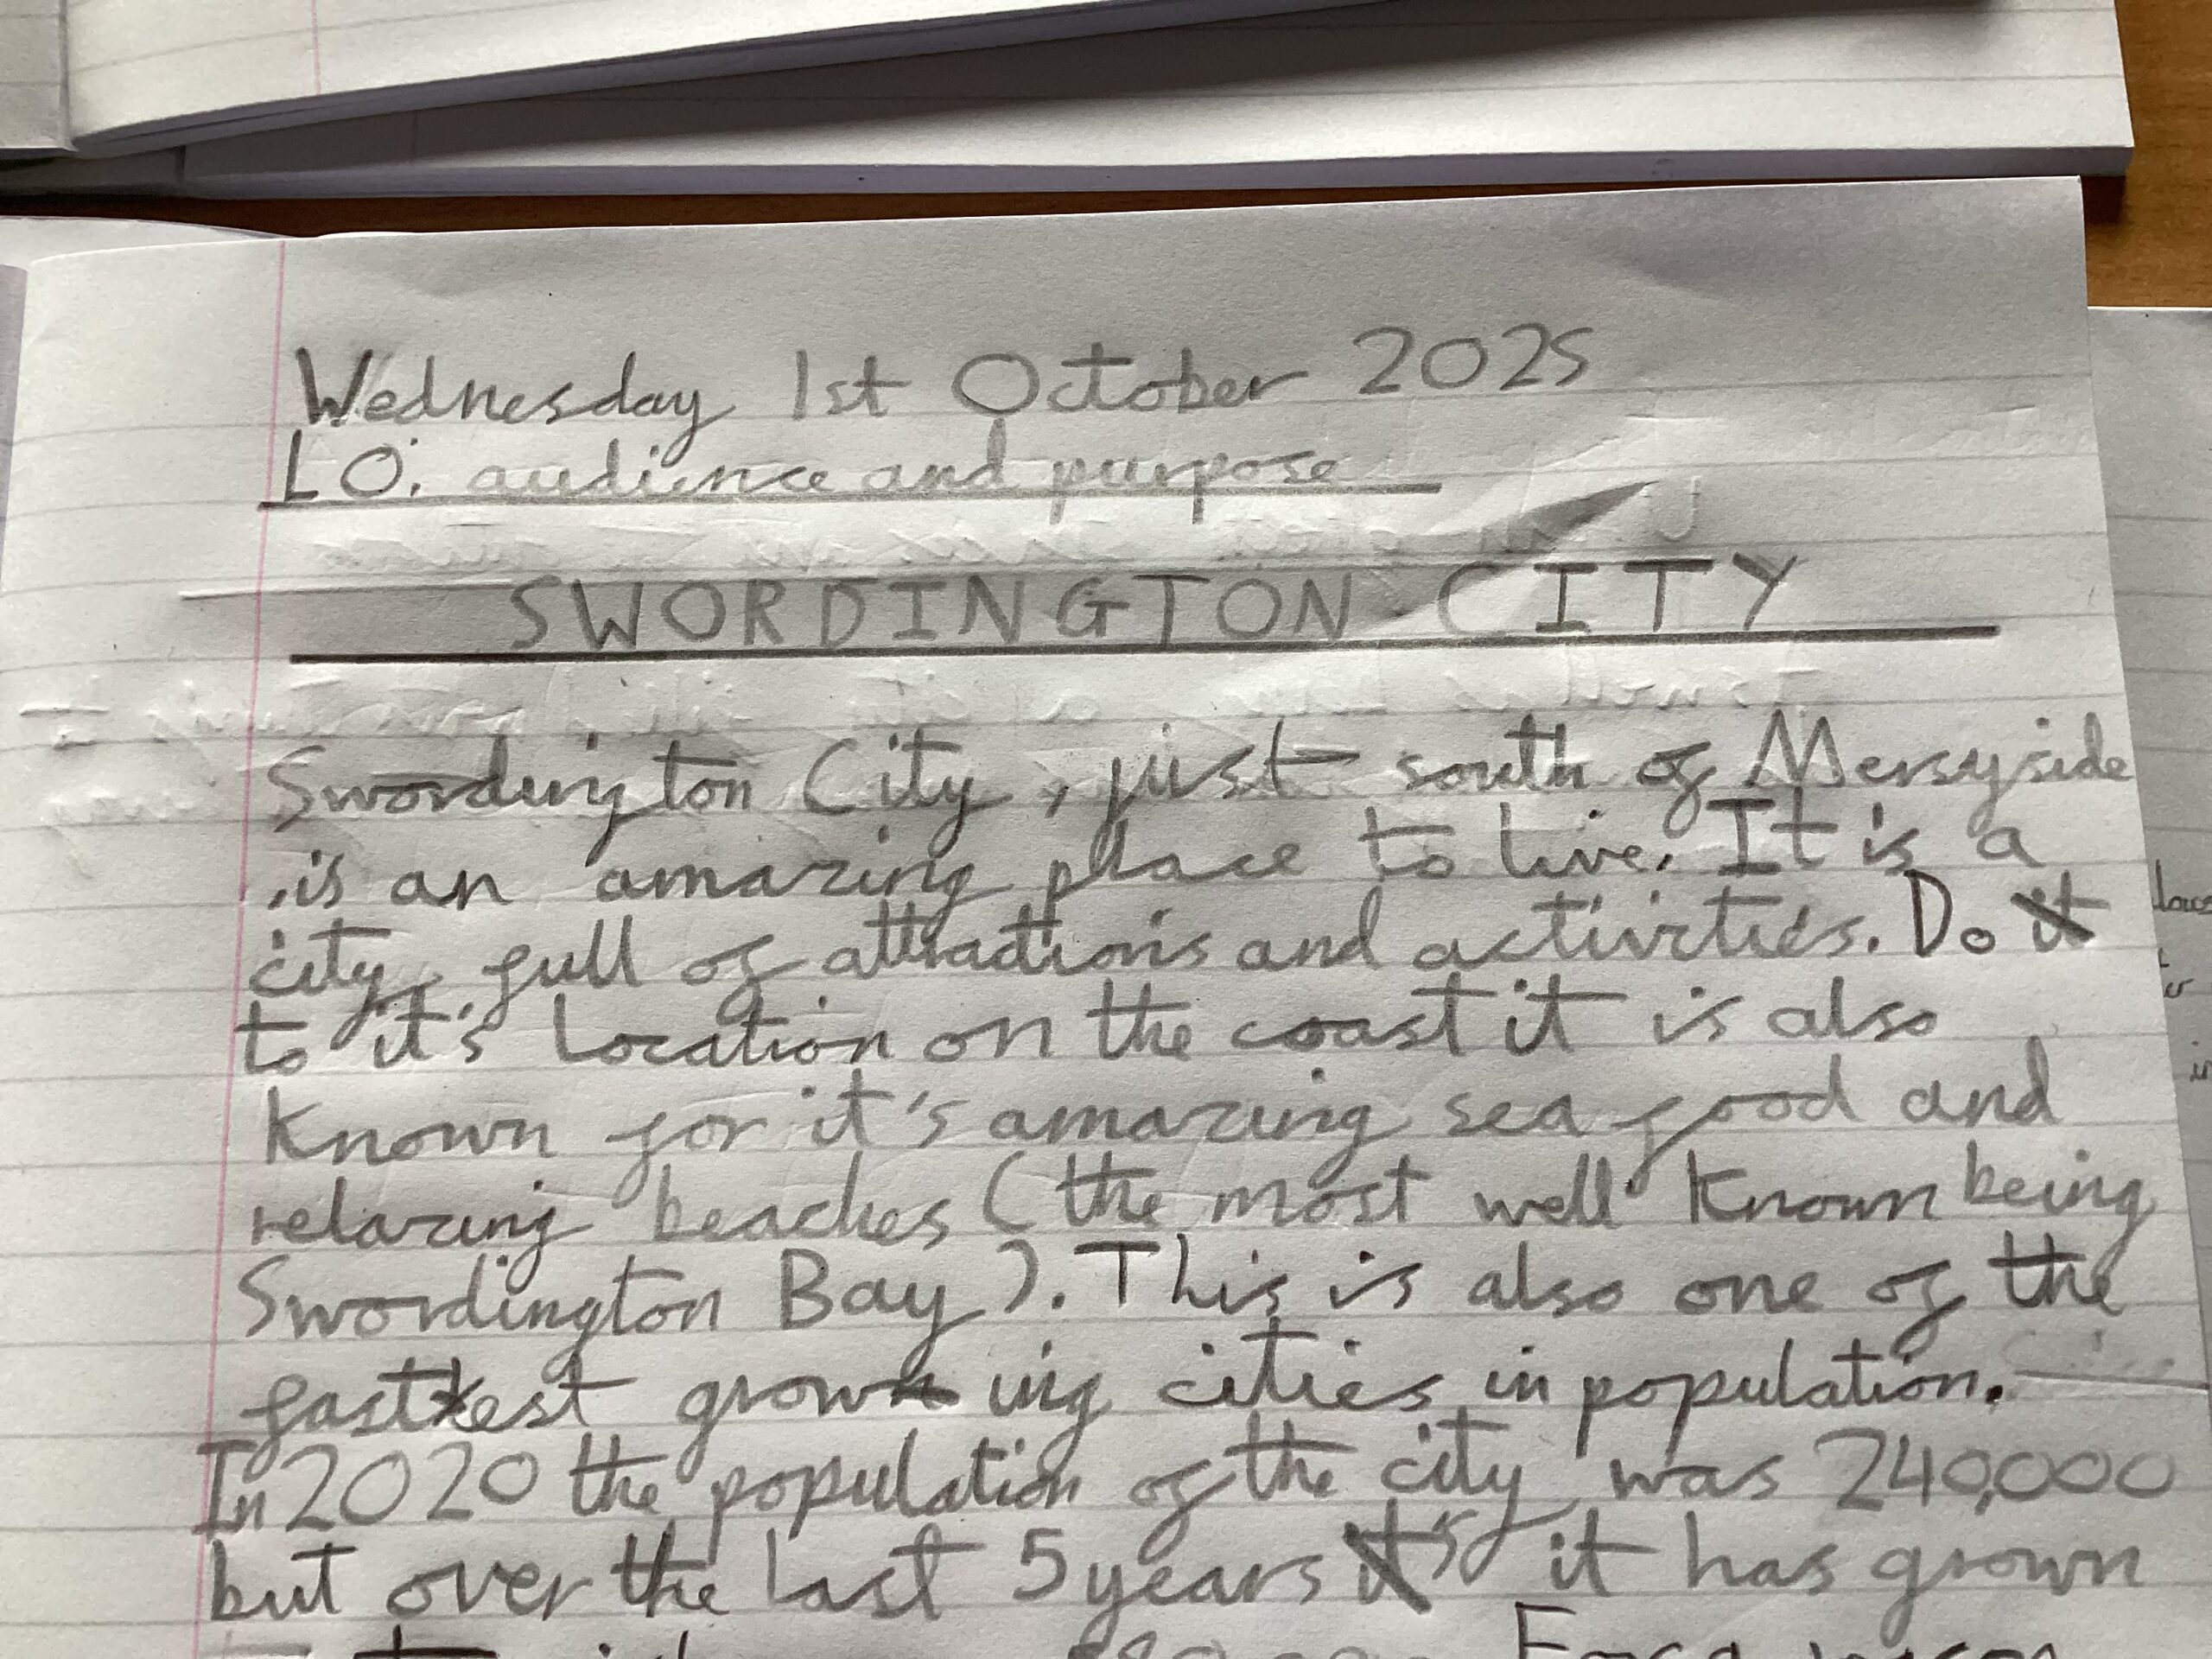 Wednesday 1st October 2025
LO: audience and purpose
SWORDINGTON CITY
Swordington City, just south of Mersyside
, is an amazing place to live. It is a
city, full of attractions and activities. Do it
to it's location on the coast it is also
known for it's amazing sea food and
relaxing beaches (the most well known being
Swordington Bay). This is also one of the
fastest growing cities in population.
In 2020 the population of the city was 240,000
but over the last 5 years it's it has grown